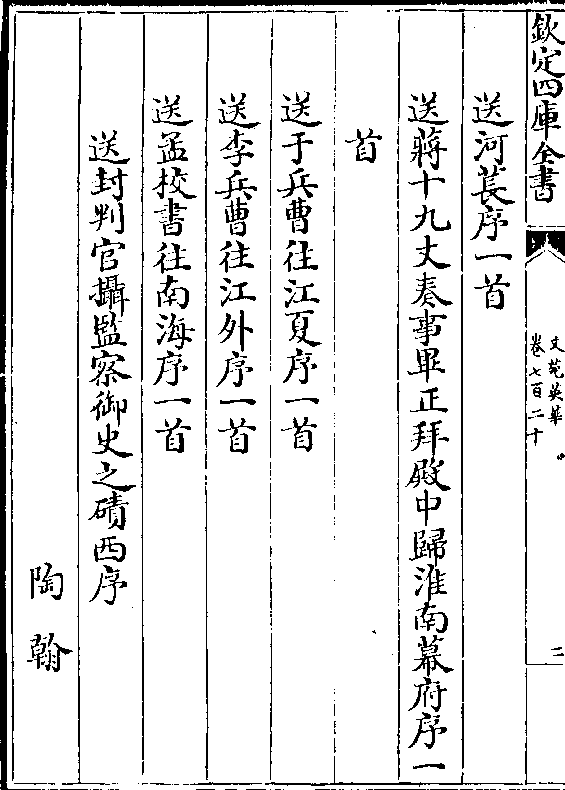 欽定四庫全書
文苑英華
卷七百二十
二
送河萇序一首
送蔣十九丈奏事畢正拜殿中歸淮南幕府序一
首
送于兵曹往江夏序一首
送李兵曹往江外序一首
送孟校書往南海序一首
送封判官攝監察御史之磧西序
陶翰